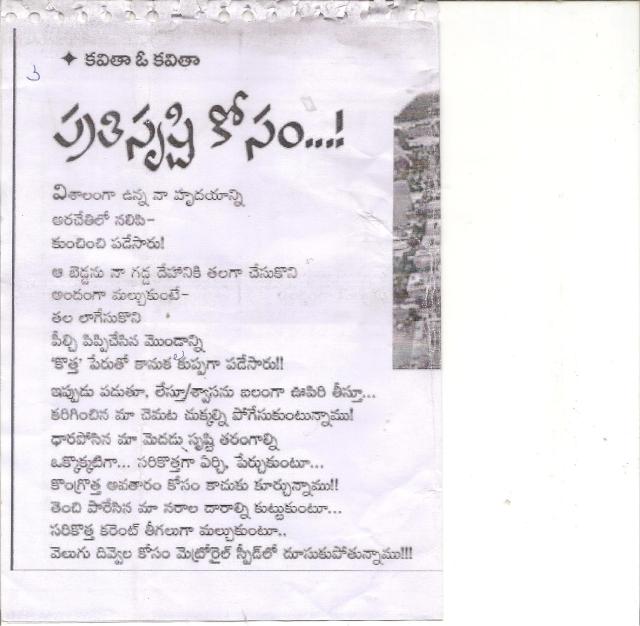 కవితా ఓ కవితా
ప్రతిసృష్టి కోసం...!
విశాలంగా ఉన్న నా హృదయాన్ని
అరచేతిలో నలిపి-
కుంచించి పడేసారు!
ఆ బెడ్డను నా గడ్డ దేహానికి తలగా చేసుకొని
అందంగా మల్చుకుంటే-
తల లాగేసుకొని
పీల్చి పిప్పిచేసిన మొండాన్ని
'కొత్త' పేరుతో కానుక కుప్పగా పడేసారు!!
ఇప్పుడు పడుతూ, లేస్తూ/శ్వాసను బలంగా ఊపిరి తీస్తూ...
కరిగించిన మా చెమట చుక్కల్ని పోగేసుకుంటున్నాము!
ధారపోసిన మా మెదడు సృష్టి తరంగాల్ని
ఒక్కొక్కటిగా... సరికొత్తగా ఏర్చి, పేర్చుకుంటూ...
కొంగ్రొత్త అవతారం కోసం కాచుకు కూర్చున్నాము!!
తెంచి పారేసిన మా నరాల దారాల్ని కుట్టుకుంటూ...
సరికొత్త కరెంట్ తీగలుగా మల్చుకుంటూ..
వెలుగు దివ్వెల కోసం మెట్రోరైల్ స్పీడ్‌లో దూసుకుపోతున్నాము!!!